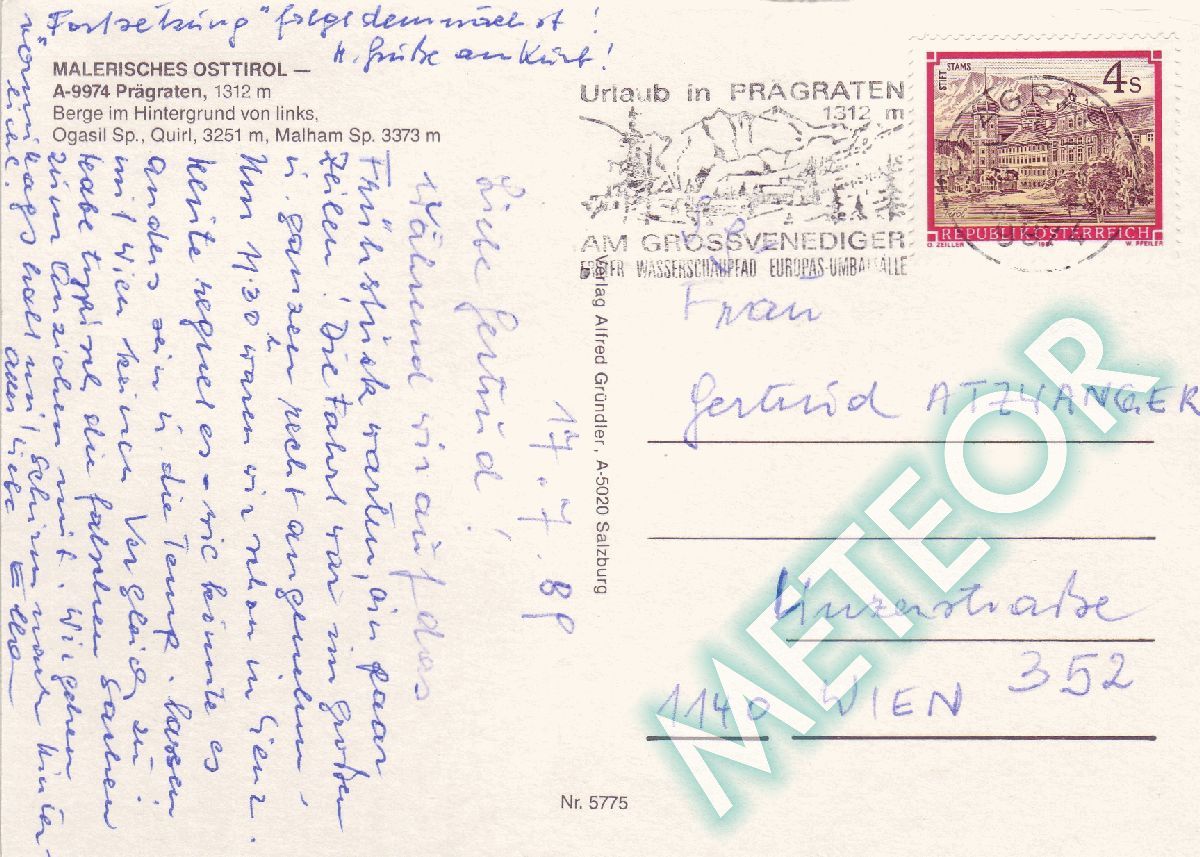 "Fortsetzung" folgt demnächst!
H. Grüße an Kurt!
MALERISCHES OSTTIROL —
A-9974 Prägraten, 1312 m
Berge im Hintergrund von links,
Ogasil Sp., Quirl, 3251 m, Malham Sp. 3373 m
17.7.89
Liebe Gertrud!
Während wir auf das
Frühstück warten, ein paar
Zeilen! Die Fahrt war im großen
u. ganzen recht angenehm!
Um 11,30 h waren wir schon in Lienz.
Heute regnet es - wie könnte es
anders sein u. die Temp. lassen
mit Wien keinen Vergleich zu!
Habe typisch die falschen Sachen
zum Anziehen mit. Wir gehen
vormittags halt mit Schirm nach Hinter-
bichl. Alles Liebe
Urlaub in PRÄGRATEN
1312 m
AM GROSSVENEDIGER
ERSTER WASSERSCHAUPFAD EUROPAS-UMBALFÄLLE
STIFT STAMS
4 S
Tirol
REPUBLIK ÖSTERREICH
O. ZEILLER 1984 W. PFEILER
Verlag Alfred Gründler, A-5020 Salzburg
Frau
Gertrud ATZWANGER
Linzerstraße
352
1140 WIEN
METEOR
Nr. 5775